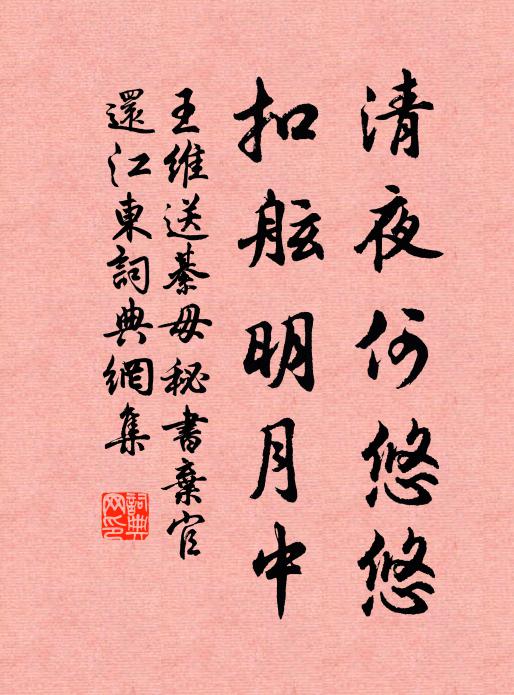 清夜何悠悠
扣舷明月中
王維送綦毋秘書棄官
還江東詞典網集
詞典
网印